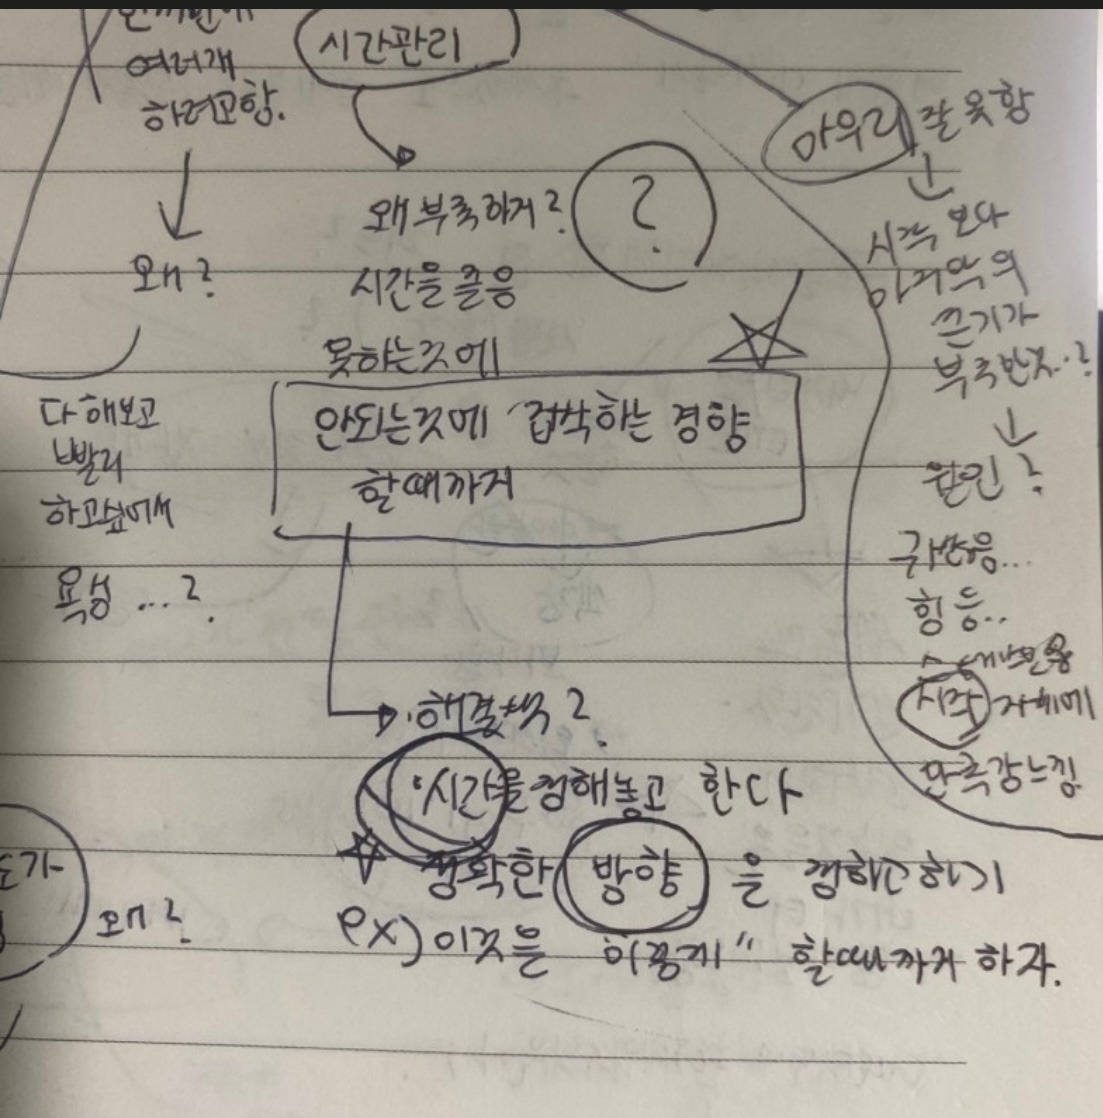 여러개
하려고함.
왜?
다 해보고
빨리
하고싶어서
욕심 ...?
시간관리
왜 부족하지?
?
시간을 줄응
못하는것에
안되는것에 집착하는 경향
할때까지
해결책?
시간을 정해놓고 한다
정확한 방향을 정하고하기
ex) 이것을 이렇게" 할때까지 하자.
마무리 잘 못함
시작보다
마지막의
끈기가
부족한지..?
원인?
귀찮음...
힘듦..
시작 자체에
만족감느낌
왜?